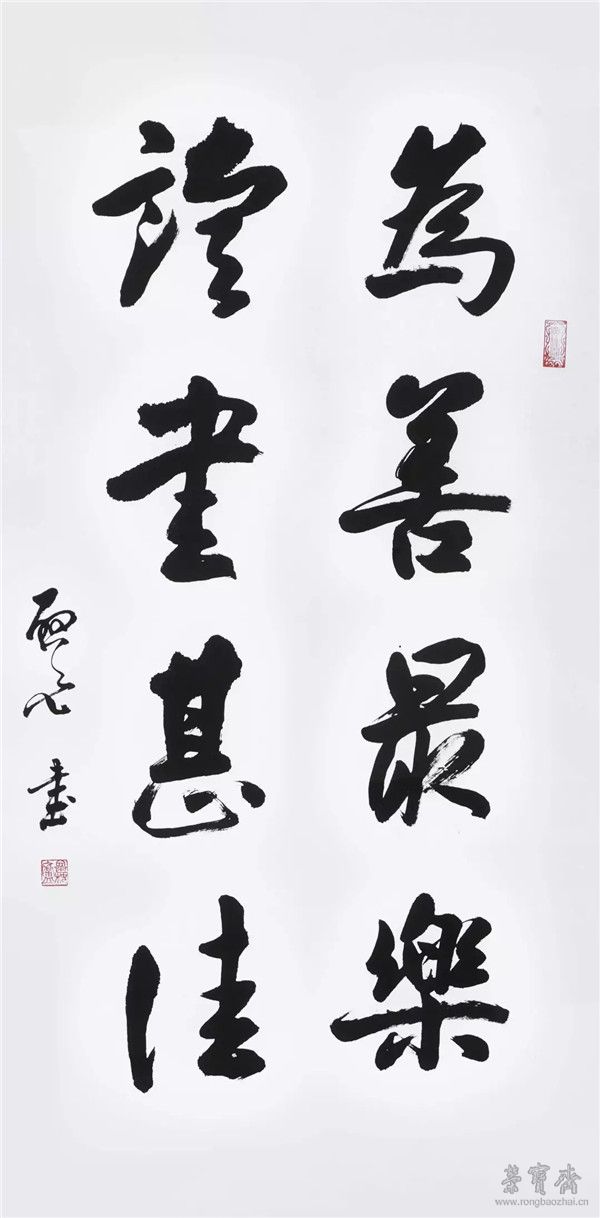 為善最樂
讀書甚佳
書
榮寶齋
www.rongbaozhai.cn